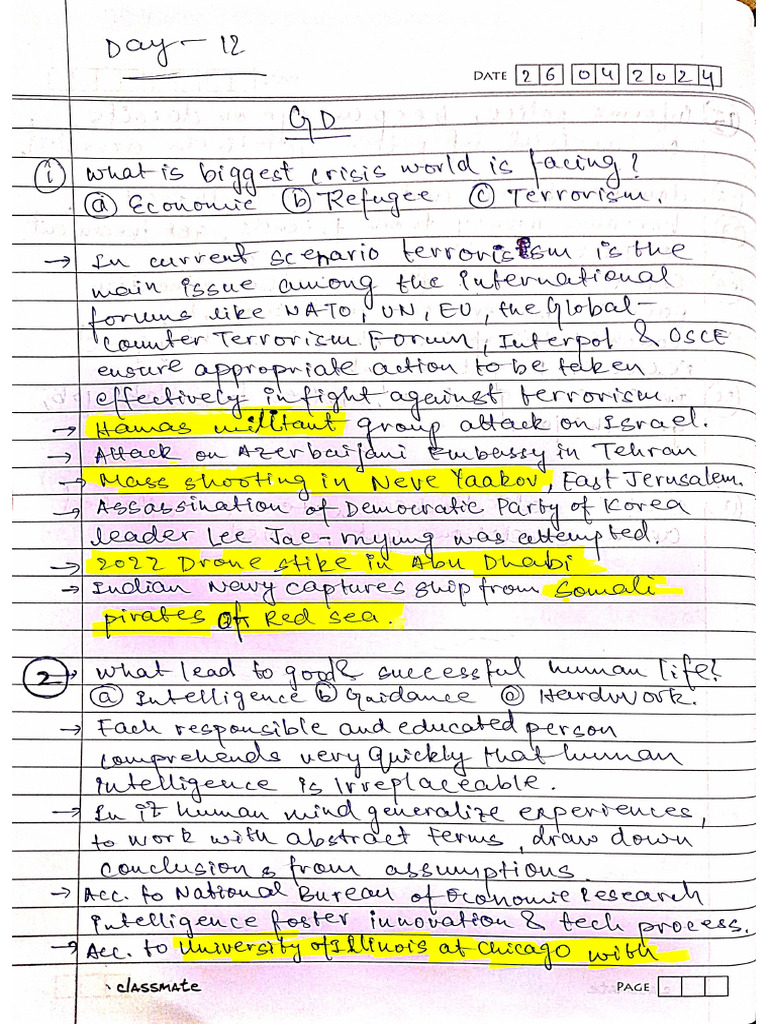 Day - 12
DATE 26 04 2024
GD
① What is biggest crisis world is facing?
ⓐ Economic ⓑ Refugee ⓒ Terrorism.
→ In current scenario terrorism is the
main issue among the international
forums like NATO, UN, EU, the Global-
counter Terrorism Forum, Interpol & OSCE
ensure appropriate action to be taken
effectively in fight against terrorism
→ Hamas militant group attack on Israel.
→ Attack on Azerbaijani Embassy in Tehran
→ Mass shooting in Neve Yaakov, East Jerusalem.
→ Assassination of Democratic Party of Korea
leader Lee Jae-myung was attempted.
→ 2022 Drone stike in Abu Dhabi
→ Indian Navy captures ship from Somali
pirates off Red sea.
② → What lead to good & successful human life?
ⓐ Intelligence ⓑ Guidance ⓒ Hardwork.
→ Each responsible and educated person
comprehends very quickly that human
intelligence is Irreplaceable.
→ In it human mind generalize experiences,
to work with abstract terms, draw down
conclusions from assumptions.
→ Acc. to National Bureau of Economic Research
intelligence foster innovation & tech process.
→ Acc. to University of Illinois at Chicago with
classmate PAGE